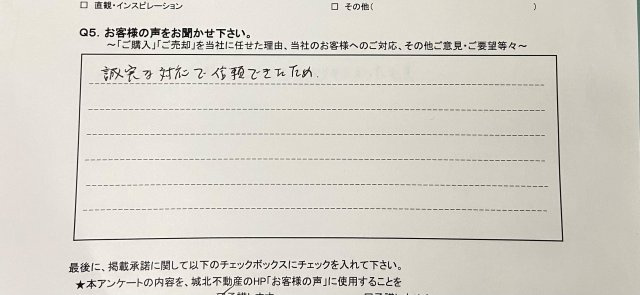 □ 直観・インスピレーション　□ その他(　)
Q5. お客様の声をお聞かせ下さい。
～「ご購入」「ご売却」を当社に任せた理由、当社のお客様へのご対応、その他ご意見・ご要望等々～
誠実な対応で信頼できたため.
最後に、掲載承諾に関して以下のチェックボックスにチェックを入れて下さい。
★本アンケートの内容を、城北不動産のHP「お客様の声」に使用することを